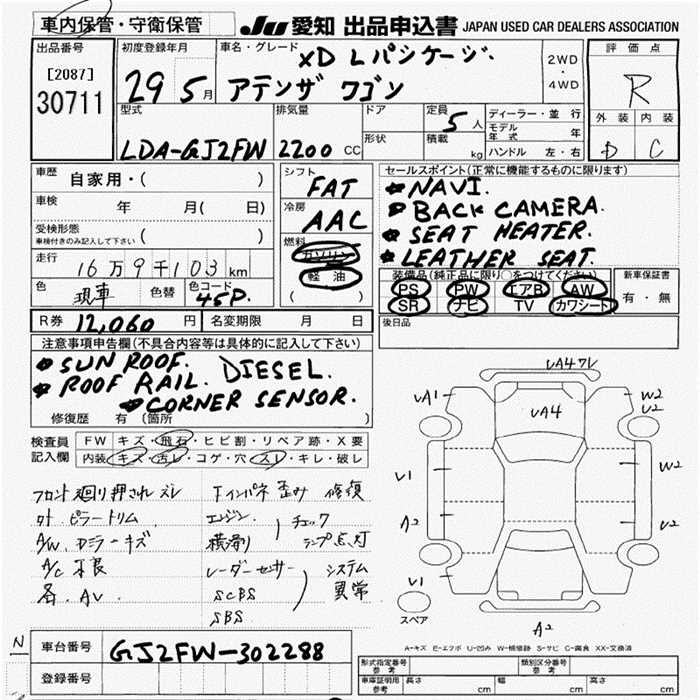 車内保管・守衛保管
JU 愛知 出品申込書 JAPAN USED CAR DEALERS ASSOCIATION
出品番号
[2087]
30711
初度登録年月
29 5月
車名・グレード
XD Lパシケージ.
アテンザ ワゴン
2WD
・
4WD
評価点
R
外装 内装
D C
型式
LDA-GJ2FW
排気量
2200 CC
ドア
形状
定員
5人
積載
kg
ディーラー・並行
モデル年式 年
ハンドル 左・右
車歴
自家用・( )
車検
年 月( 日)
受検形態
車検付きのみ記入して下さい ( )
走行
16万9千103km
色 現車
色替
色コード 45P.
R券 12,060円
名変期限 月 日
シフト
FAT
冷房
AAC
燃料
ガソリン
軽油
( )
セールスポイント(正常に機能するものに限ります)
NAVI.
BACK CAMERA.
SEAT HEATER.
LEATHER SEAT.
装備品(純正品に限り○をつけてください)
PS PW エアB AW
SR ナビ TV カワシート
新車保証書
有・無
後日品
注意事項申告欄(不具合内容等は具体的に記入して下さい)
SUN ROOF. DIESEL.
ROOF RAIL.
CORNER SENSOR.
修復歴 有(箇所 )
検査員記入欄
FW キズ・飛石・ヒビ割・リペア跡・X要
内装 キズ・汚レ・コゲ・穴・スレ・キレ・破レ
フロント廻り押され ズレ
ピラートリム
A/W. ミラーキズ
A/C 不良
各. AV.
下インパネ歪み 修復
エンジン. チェック
横滑り ランプ点灯
レーダーセンサー システム
SCBS 異常
SBS
UA47レ
UA1
UA4
W2
U2
U1
W2
A2
U2
U1
スペア
A2
A-キズ E-エクボ U-凹み W-補修跡 S-サビ C-腐食 XX-交換済
N
車台番号 GJ2FW-302288
登録番号
形式指定番号 参考
類別区分番号 参考
車庫証明用 参考 長さ cm 幅 cm 高さ cm